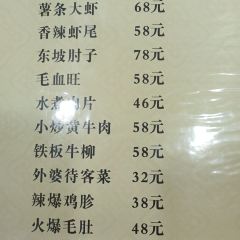 薯条大虾 68元
香辣虾尾 58元
东坡肘子 78元
毛血旺 58元
水煮肉片 46元
小炒黄牛肉 58元
铁板牛柳 58元
外婆待客菜 32元
辣爆鸡胗 38元
火爆毛肚 48元